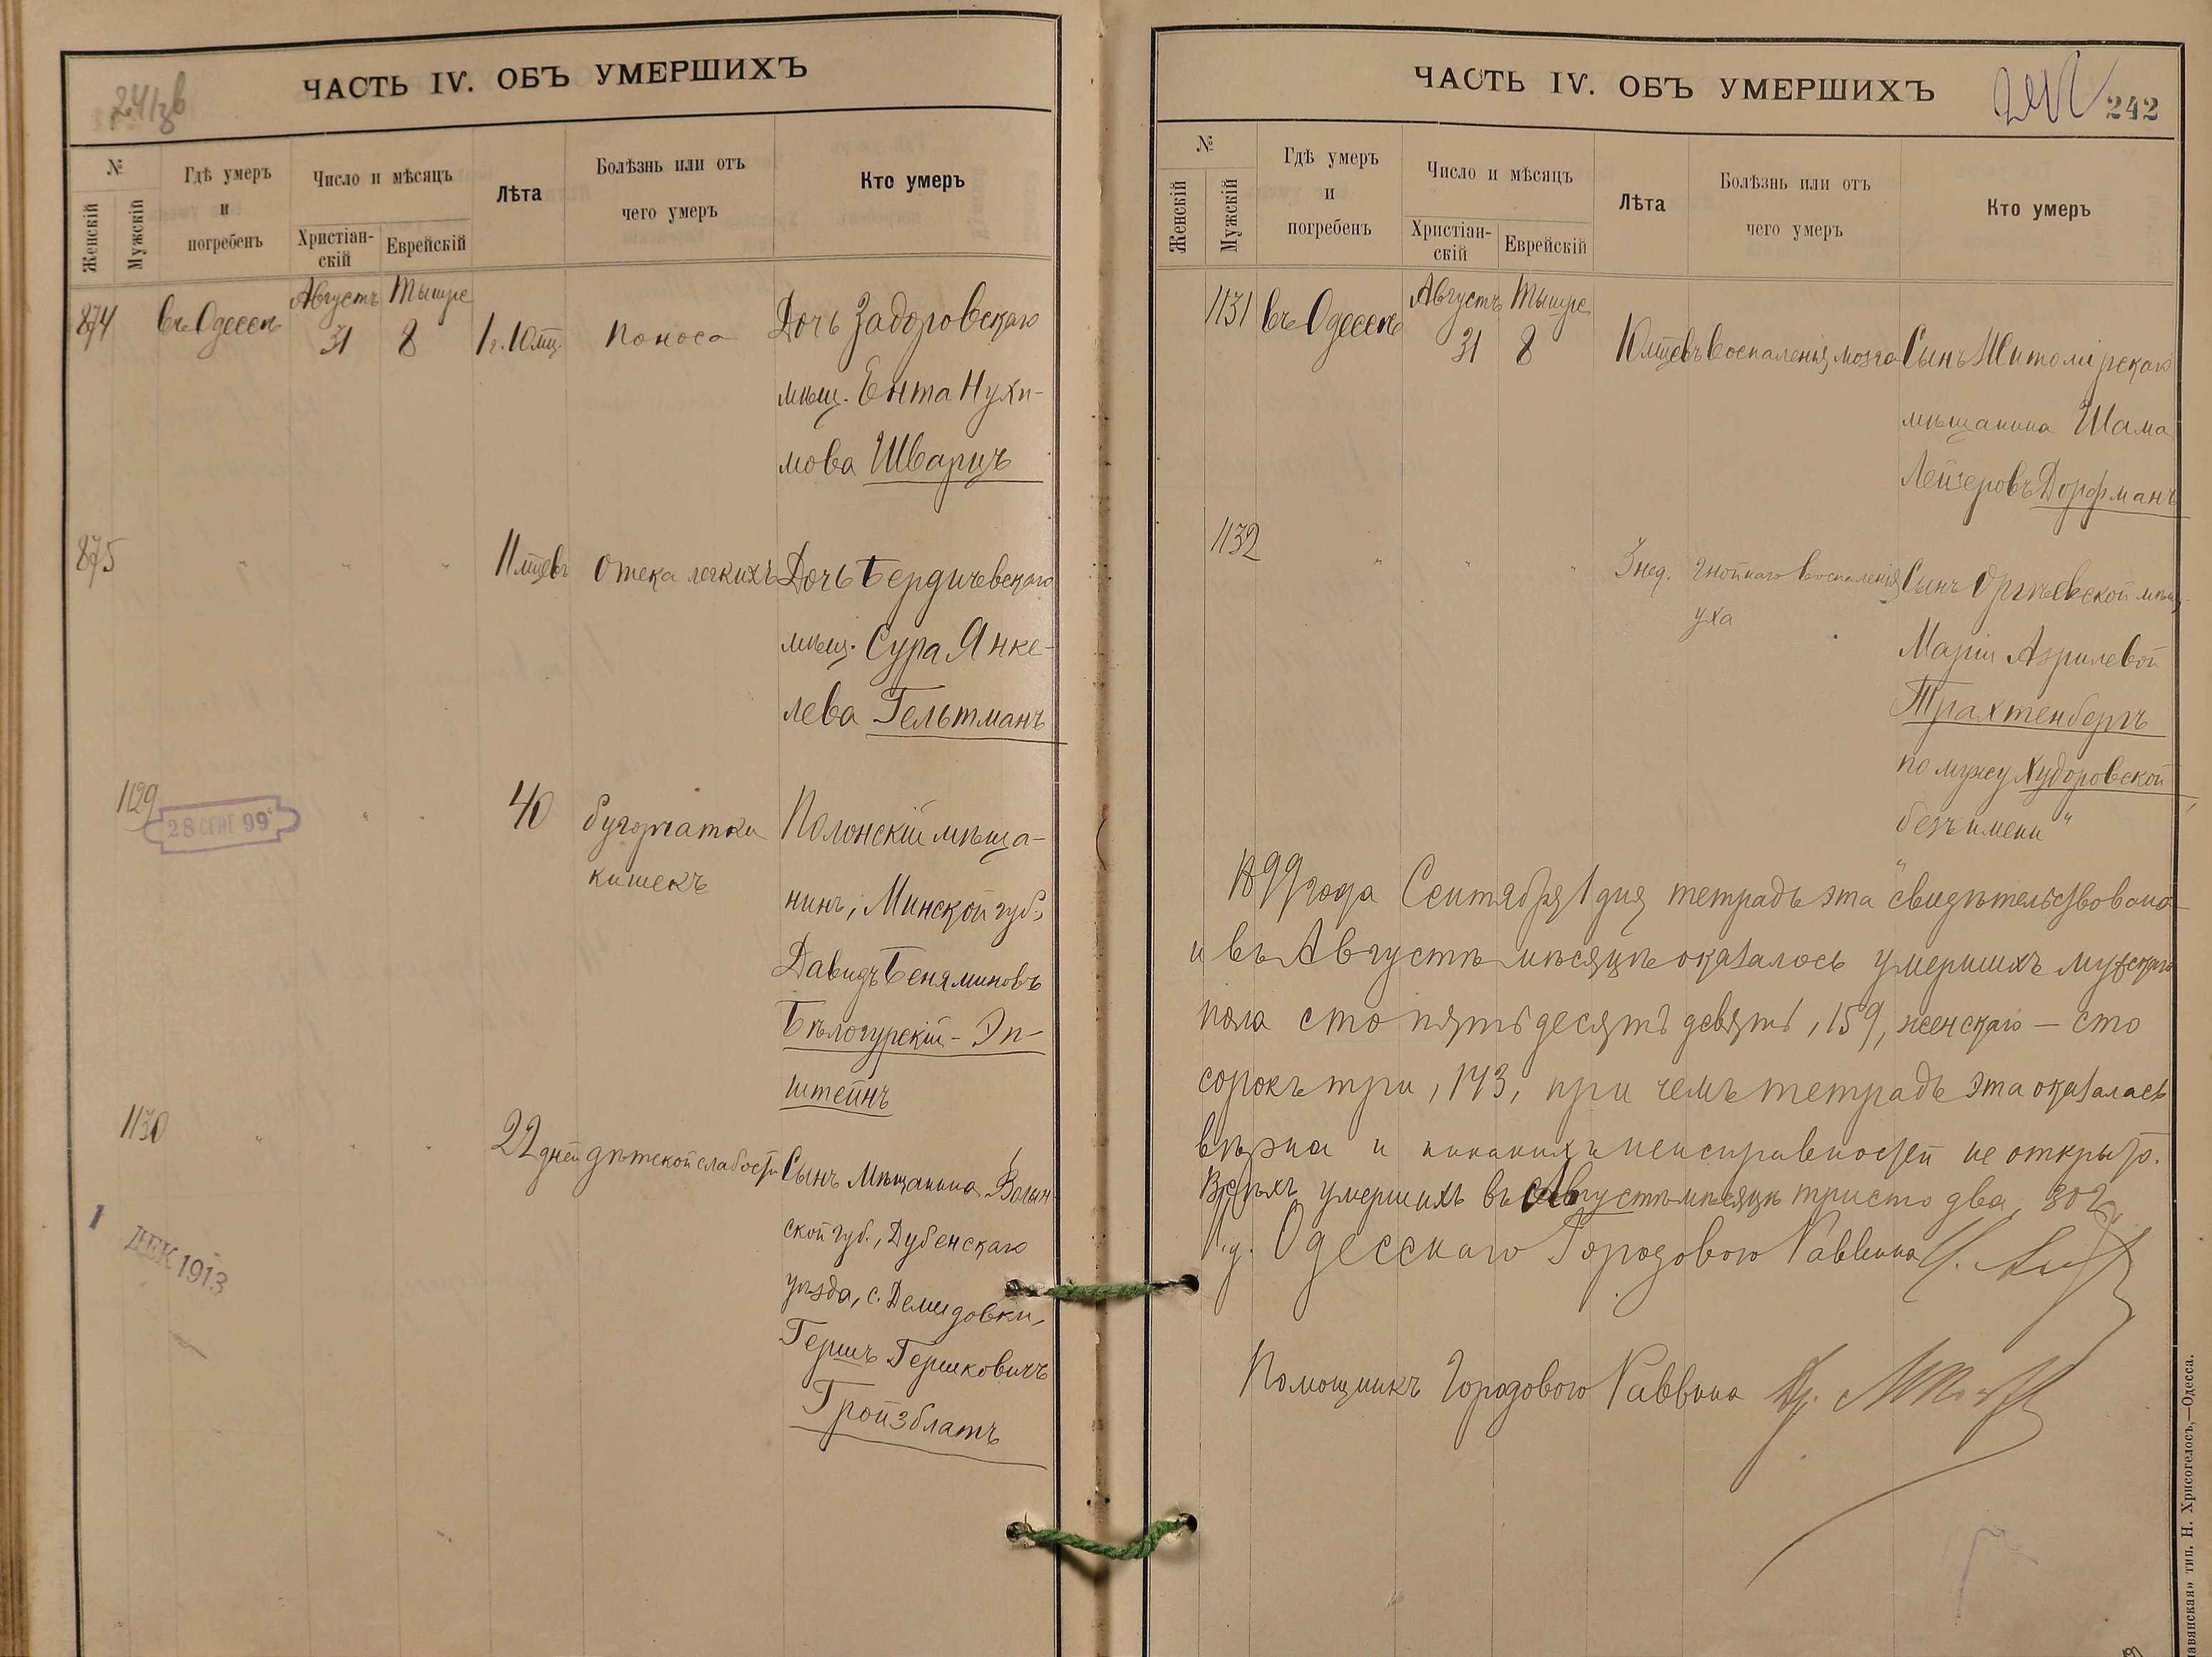 241 зв
ЧАСТЬ IV. ОБЪ УМЕРШИХЪ
№
Женскій
Мужскій
Гдѣ умеръ
и
погребенъ
Число и мѣсяцъ
Христіан-
скій
Еврейскій
Лѣта
Болѣзнь или отъ
чего умеръ
Кто умеръ
874 въ Одессѣ Августъ 31 Тышре 8 1 г. 10 мц. Поноса Дочь Задоровскаго
мѣщ. Ента Нухи-
мова Шварцъ
875 " " " " 11 мцевъ Отека легкихъ Дочь Бердичевскаго
мѣщ. Сура Янке-
лева Гельтманъ
1129 " " 40 бугорчатки Полонскій мѣща-
кишекъ
28 СЕНТ 99
нинъ, Минской губ.,
Давидъ Беняминовъ
Бѣлогурскій - Эп-
штейнъ
1130 " " " 22 дней дѣтской слабости Сынъ мѣщанина Волын-
ской губ., Дубенскаго
уѣзда, с. Демидовки,
Гершъ Гершковичъ
Гройзблатъ
1 ДЕК 1913
ЧАСТЬ IV. ОБЪ УМЕРШИХЪ
242
242
№
Женскій
Мужскій
Гдѣ умеръ
и
погребенъ
Число и мѣсяцъ
Христіан-
скій
Еврейскій
Лѣта
Болѣзнь или отъ
чего умеръ
Кто умеръ
1131 въ Одессѣ Августъ 31 Тышре 8 10 мцевъ Воспаленія мозга Сынъ Житомірскаго
мѣщанина Шама
Лейзеровъ Дорфманъ
1132 " " " 3 нед. гнойнаго воспаленія Сынъ Оргѣевской мѣщ.
уха
Маріи Азрилевой
Трахтенбергъ
по мужу Худоровской,
безъ имени "
1899 года Сентября 1 дня тетрадь эта свидѣтельствована
и въ Августѣ мѣсяцѣ оказалось умершихъ мужскаго
пола сто пятьдесятъ девять, 159, женскаго — сто
сорокъ три, 143, при чемъ тетрадь эта оказалась
вѣрна и никакихъ неисправностей не открыто.
Всѣхъ умершихъ въ Августѣ мѣсяцѣ триста два, 302
И. д. Одесскаго Городового Раввина
Помощникъ Городового Раввина
тип. Н. Хрисогелосъ,—Одесса.